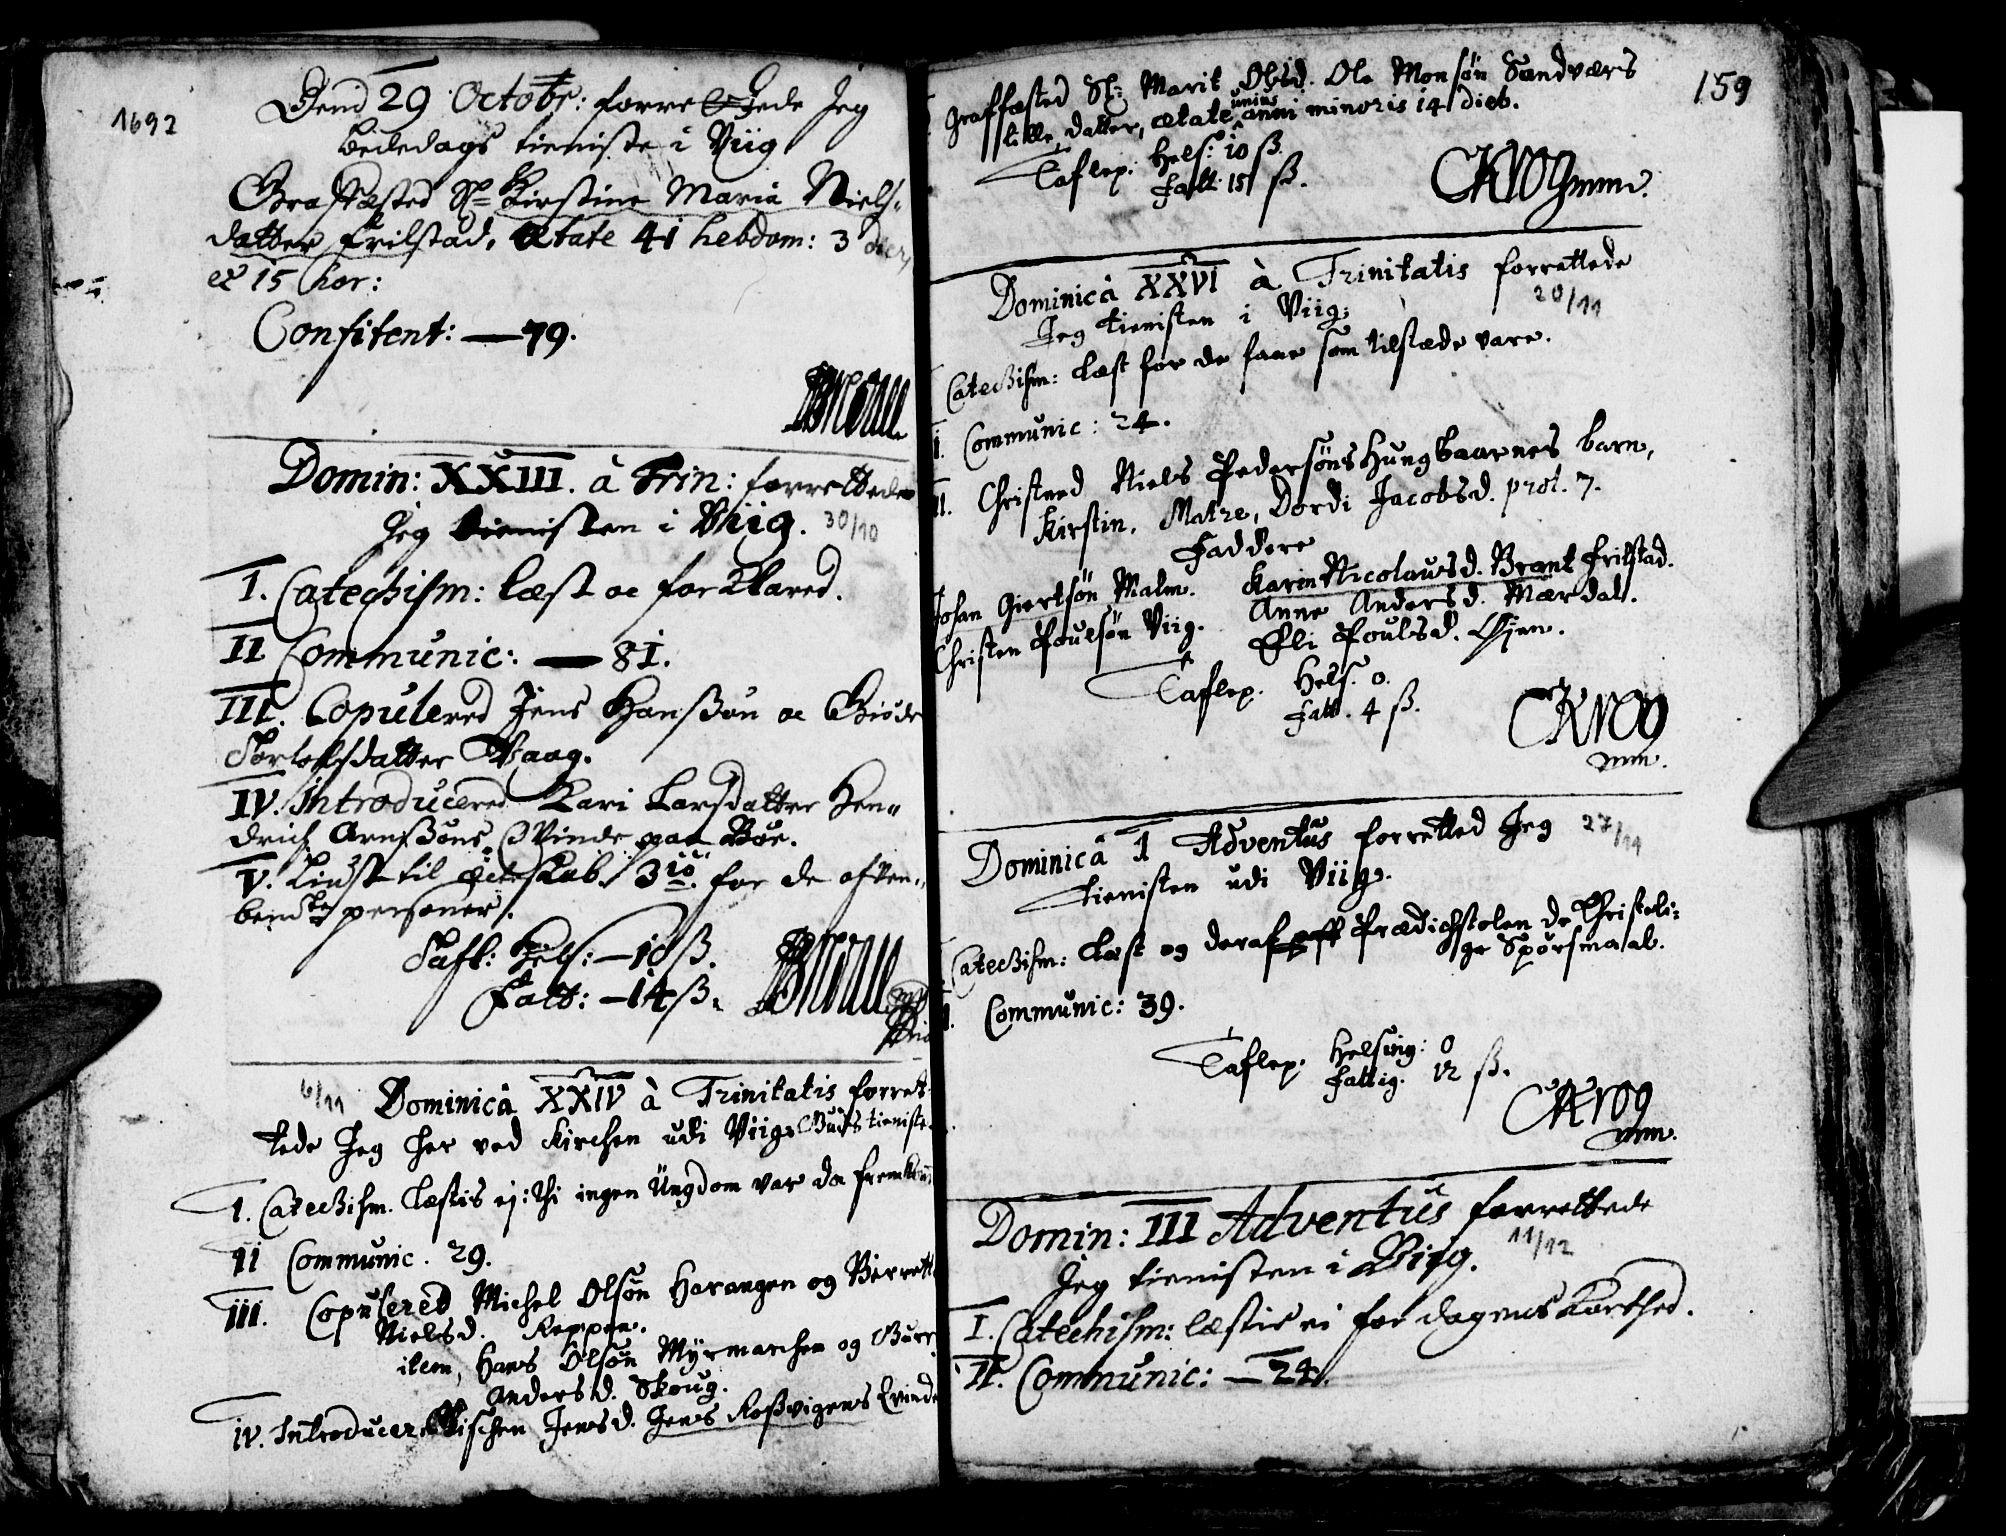 1692
Dend 29 Octobr: forrettede Jeg
bededags tieniste i Viig
Graffæsted Sl= Kirstine Maria Niels-
datter Frilstad, Ætate 41 hebdom: 3 dier,
et 15 hor:
Confitent: — 79.
Domin: XXIII. à Trin: forrettede
Jeg tienisten i Viig. 30/10
I. Catechism: læst oc forklared.
II Communic: — 81.
III. Copulered Jens Hanssøn oc
datter Vaag.
IV. Introducered Kari Larsdatter Hen-
drich Arnssøns Qvinde paa Bøe.
V. Liust til æcteskab 3io. for de ofven-
bendte personer.
Tafl: Hels: — 10 ß.
Fatt: — 14 ß.
6/11 Dominicâ XXIV à Trinitatis forret-
tede Jeg her ved Kirchen udi Viig Guds tieniste.
1. Catechism. Læstis ej: thi ingen Ungdom var da
II Communic. 29.
III. Copulered Michel Olsøn Harangen og Berrett
Nielsd. Reppen.
item, Hans Olsøn Myrmarchen og
Andersd. Skoug.
IV. Introducer. Jensd. Jens Roßvigens Qvinde
159
Graffæsted Sl: Marit Olesd. Ole Monsøn Sandværs
lille datter, ætate unius anni minoris 14 dieb.
Taflep. Hels: 10 ß.
Fatt. 15 ß.
CKrog mm.
Dominicâ XXVI à Trinitatis forrettede
Jeg tienisten i Viig: 20/11
Catechism: Læst for de faae som tilstæde vare.
I. Communic: 24.
II. Christned Niels Pedersøns Hungbaarnes barn,
Kirstin. Matre, Dordi Jacobsd. prot. 7.
Faddere
Johan Giertsøn Malm. Karin Nicolausd. Brant Frilstad.
Christen Poulsøn Viig. Anne Andersd. Mærdal.
Eli Poulsd. Øjen.
Taflep. Hels. 0.
Fatt. 4 ß.
CKrog
mm.
Dominicâ 1 Adventus forretted Jeg 27/11
tienisten udi Viig.
Catechism: Læst og deraf Prædichstolen de Christeli-
ge Spørsmaal.
Communic: 39.
Taflep. Helsing: 0
Fattig. 12 ß.
CKrog
mm.
Domin: III Adventus forrettede
Jeg tienisten i Viig. 11/12
I. Catechism: læstis ei for dagens korthed.
II. Communic: — 24.